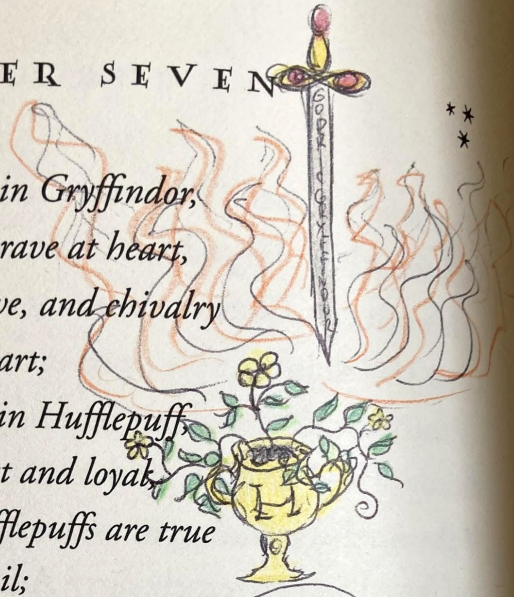 ER SEVEN
GODRIC GRYFFINDOR
in Gryffindor,
rave at heart,
ve, and chivalry
art;
in Hufflepuff,
t and loyal,
fflepuffs are true
il;
H